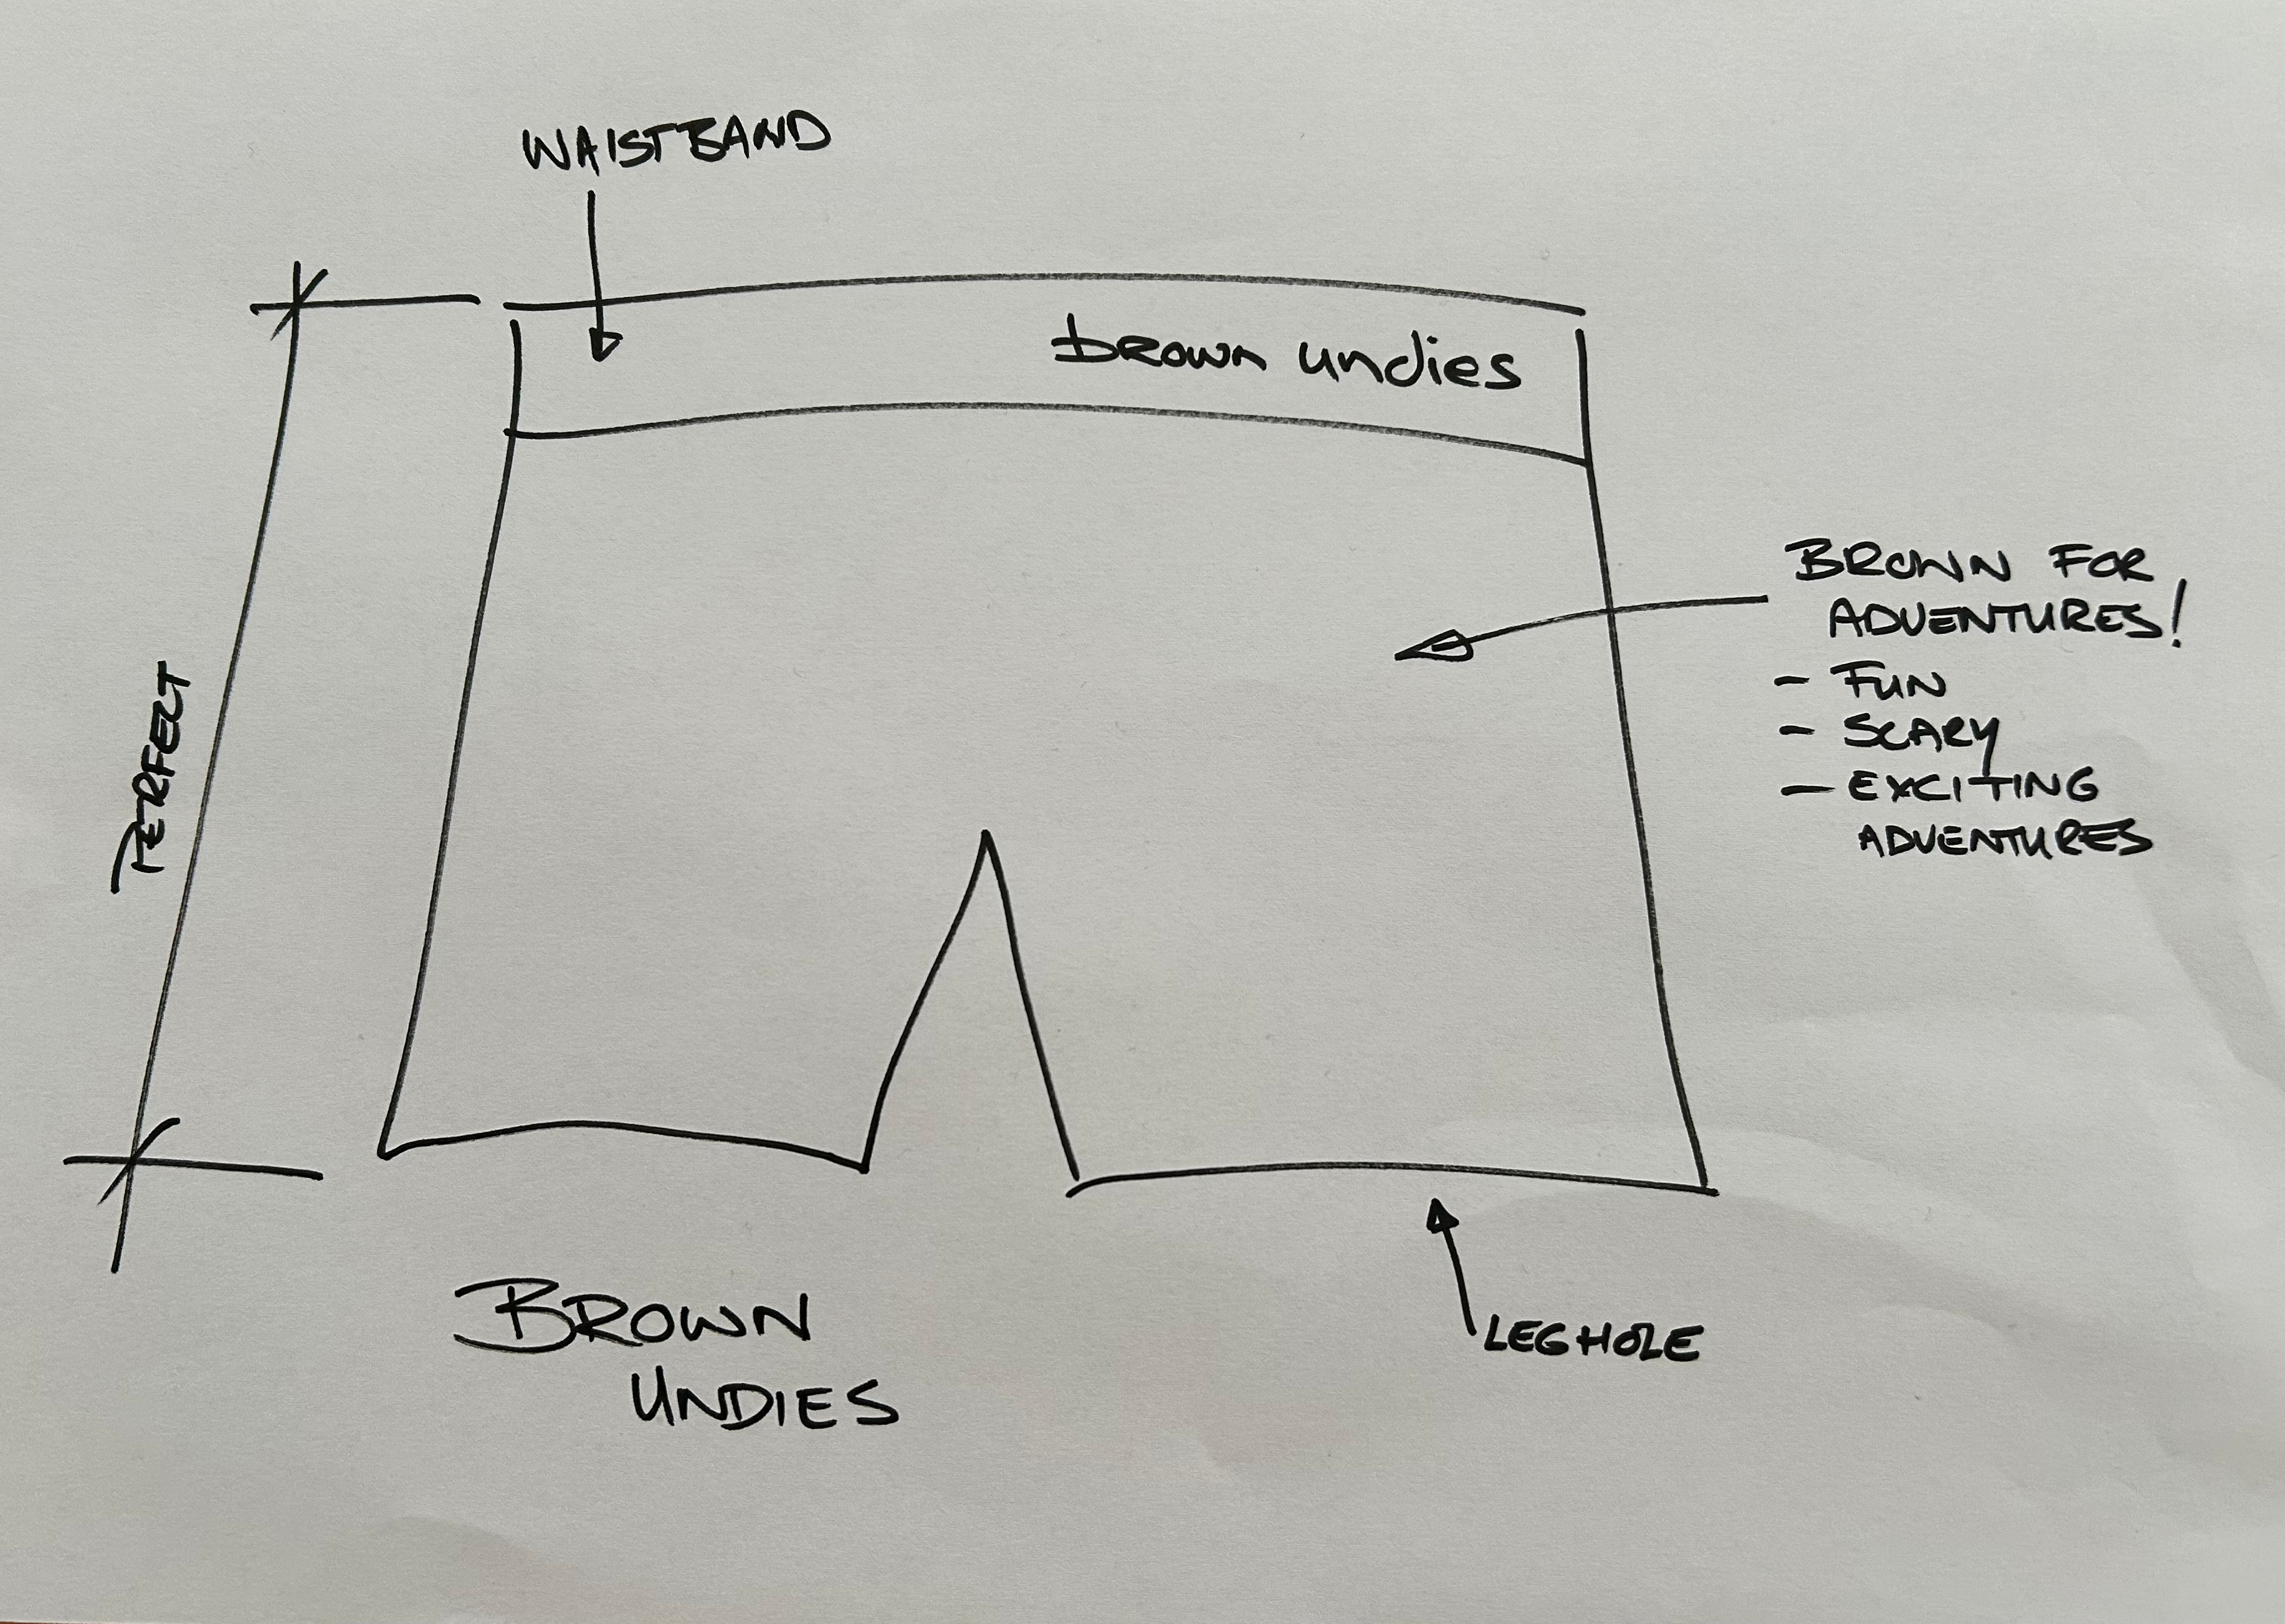 WAISTBAND
brown undies
PERFECT
BROWN FOR
ADVENTURES!
- FUN
- SCARY
- EXCITING
ADVENTURES
LEGHOLE
BROWN
UNDIES